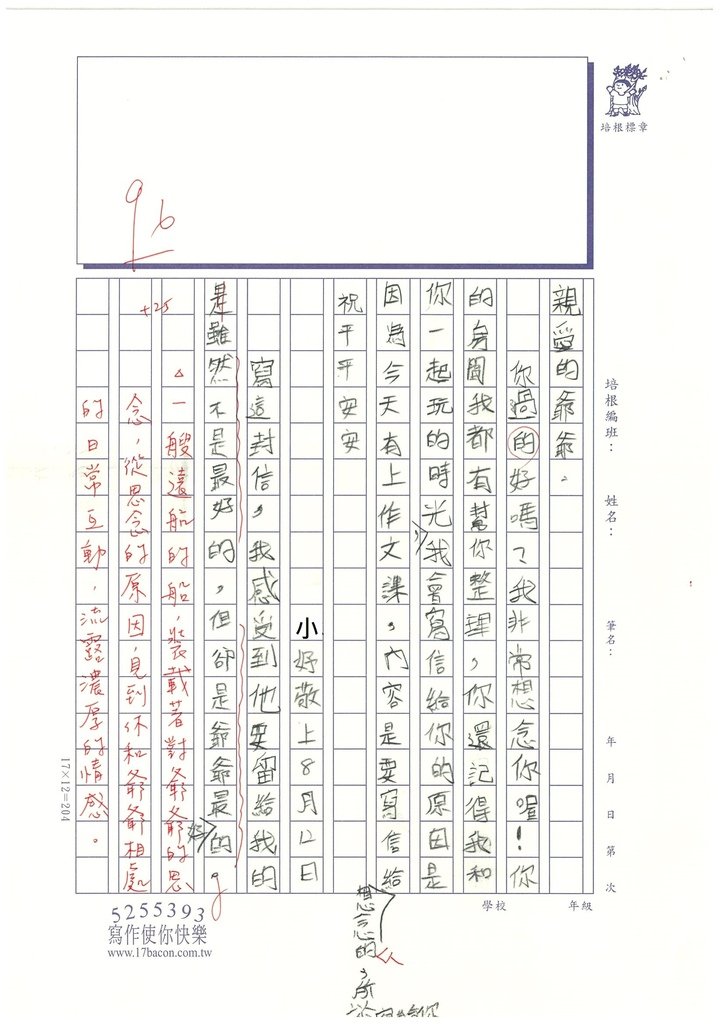 培根標章
培根編班：　姓名：　筆名：　年　月　日　第　次
親愛的爺爺。
你過的好嗎？我非常想念你喔！你
的身閫我都有幫你整理，你還記得我和
你一起玩的時光我會寫信給你的原因是
因為今天有上作文課，內容是要寫信給
想念的人
祝平平安安
小妤敬上8月12日
寫這封信，我感受到他要留給我的
是雖然不是最好的，但卻是爺爺最好的
一艘遠航的船，裝載著對爺爺的思
念，從思念的原因，見到你和爺爺相處
的日常互動，流露濃厚的情感。
96
+25
17×12=204
學校　年級
5255393
寫作使你快樂
www.17bacon.com.tw